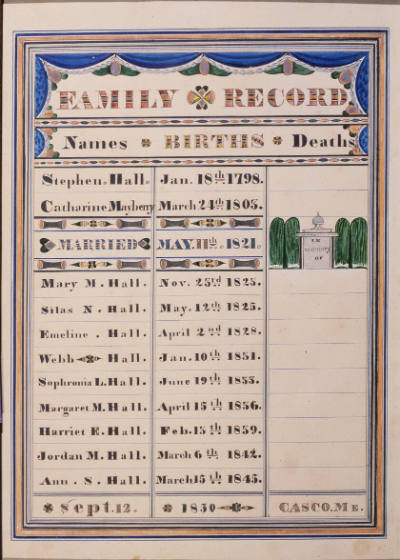 FAMILY RECORD
Names BIRTHS Deaths
Stephen. Hall. Jan. 18th 1798.
Catharine Mayberry March 24th 1803.
MARRIED MAY. 11th. 1821.
IN
MEMORY
OF
Mary M. Hall. Nov. 23rd 1823.
Silas N. Hall. May. 12th 1825.
Emeline . Hall. April 2nd 1828.
Webb Hall. Jan. 10th 1831.
Sophronia L. Hall. June 19th 1833.
Margaret M. Hall. April 15th 1836.
Harriet E. Hall. Feb. 13th 1839.
Jordan M. Hall. March 6th 1842.
Ann . S. Hall. March 15th 1845.
Sept. 12. 1850 CASCO. ME.